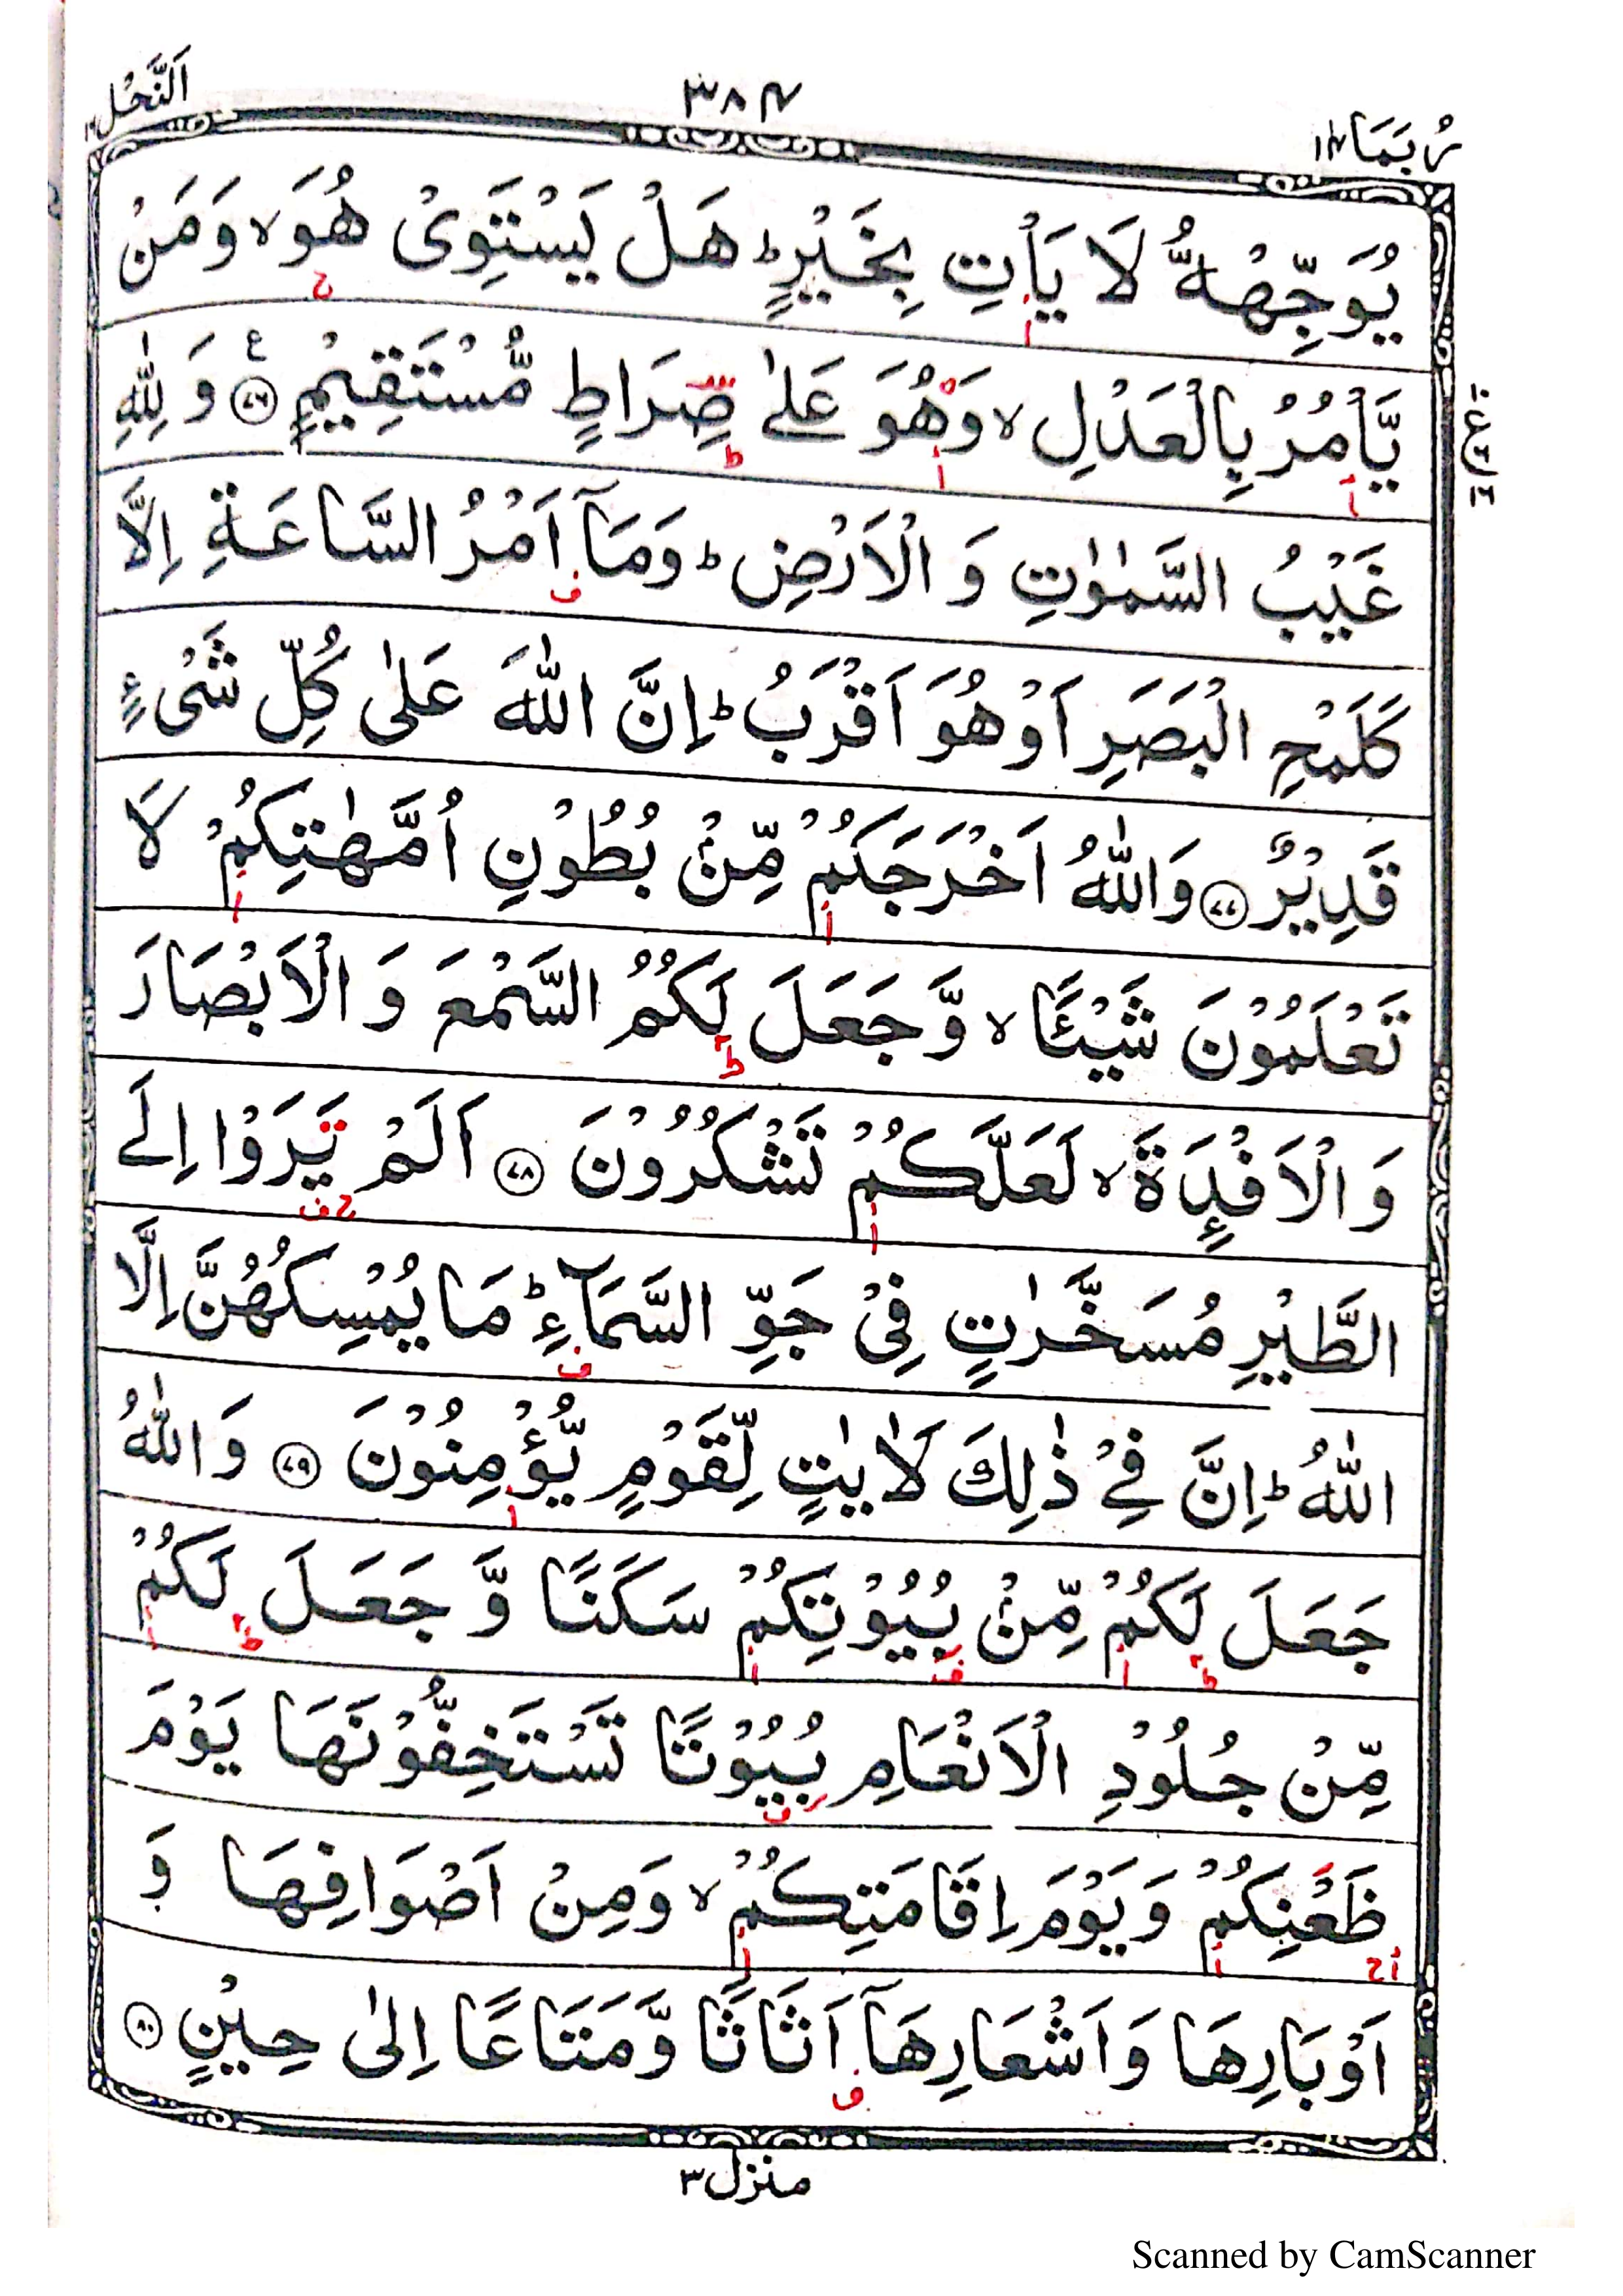 رُبَمَا ۱۴
۳۸۴
اَلنَّحْل ۱۶
يُوَجِّهْهُّ لَا يَاْتِ بِخَيْرٍ ؕ هَلْ يَسْتَوِىْ هُوَ ۙ وَمَنْ
يَّاْمُرُ بِالْعَدْلِ ۙ وَهُوَ عَلٰى صِرَاطٍ مُّسْتَقِيْمٍ ﴿۷۶﴾ وَ لِلّٰهِ
غَيْبُ السَّمٰوٰتِ وَ الْاَرْضِ ؕ وَمَآ اَمْرُ السَّاعَةِ اِلَّا
كَلَمْحِ الْبَصَرِ اَوْ هُوَ اَقْرَبُ ؕ اِنَّ اللّٰهَ عَلٰى كُلِّ شَىْءٍ
قَدِيْرٌ ﴿۷۷﴾ وَاللّٰهُ اَخْرَجَكُمْ مِّنْۢ بُطُوْنِ اُمَّهٰتِكُمْ لَا
تَعْلَمُوْنَ شَيْـًٔا ۙ وَّ جَعَلَ لَكُمُ السَّمْعَ وَ الْاَبْصَارَ
وَ الْاَفْـِٕدَةَ ۙ لَعَلَّكُمْ تَشْكُرُوْنَ ﴿۷۸﴾ اَلَمْ يَرَوْا اِلَى
الطَّيْرِ مُسَخَّرٰتٍ فِىْ جَوِّ السَّمَآءِ ؕ مَا يُمْسِكُهُنَّ اِلَّا
اللّٰهُ ؕ اِنَّ فِىْ ذٰلِكَ لَاٰيٰتٍ لِّقَوْمٍ يُّؤْمِنُوْنَ ﴿۷۹﴾ وَ اللّٰهُ
جَعَلَ لَكُمْ مِّنْۢ بُيُوْتِكُمْ سَكَنًا وَّ جَعَلَ لَكُمْ
مِّنْ جُلُوْدِ الْاَنْعَامِ بُيُوْتًا تَسْتَخِفُّوْنَهَا يَوْمَ
ظَعْنِكُمْ وَيَوْمَ اِقَامَتِكُمْ ۙ وَمِنْ اَصْوَافِهَا وَ
اَوْبَارِهَا وَاَشْعَارِهَآ اَثَاثًا وَّمَتَاعًا اِلٰى حِيْنٍ ﴿۸۰﴾
منزل ۳
Scanned by CamScanner